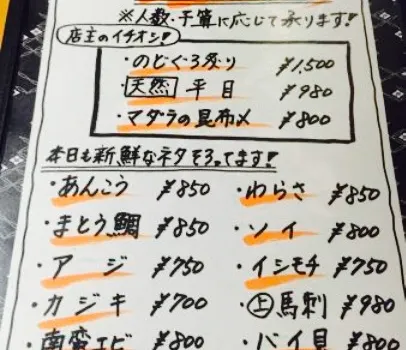 ※人数・予算に応じて承ります!
店主のイチオシ!
・のどぐろ炙り ¥1,500
・天然 平目 ¥980
・マダラの昆布〆 ¥800
本日も新鮮なネタそろってます!
・あんこう ¥850 ・わらさ ¥850
・まとう鯛 ¥850 ・ソイ ¥800
・アジ ¥750 ・イシモチ ¥750
・カジキ ¥700 ・㊤馬刺 ¥980
・南蛮エビ ¥800 ・バイ貝 ¥800